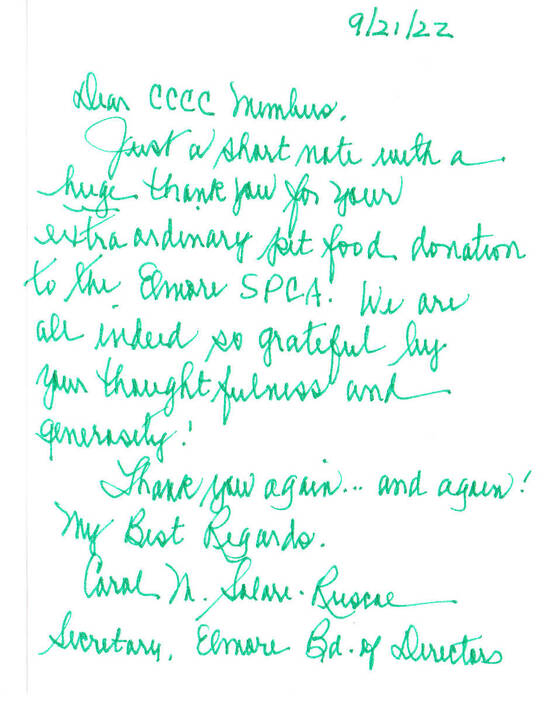 9/21/22
Dear CCCC Members,
Just a short note with a
huge thank you for your
extraordinary pet food donation
to the Elmore SPCA! We are
all indeed so grateful by
your thoughtfulness and
generosity!
Thank you again... and again!
My Best Regards.
Carol M.
Secretary, Elmore Bd. of Directors